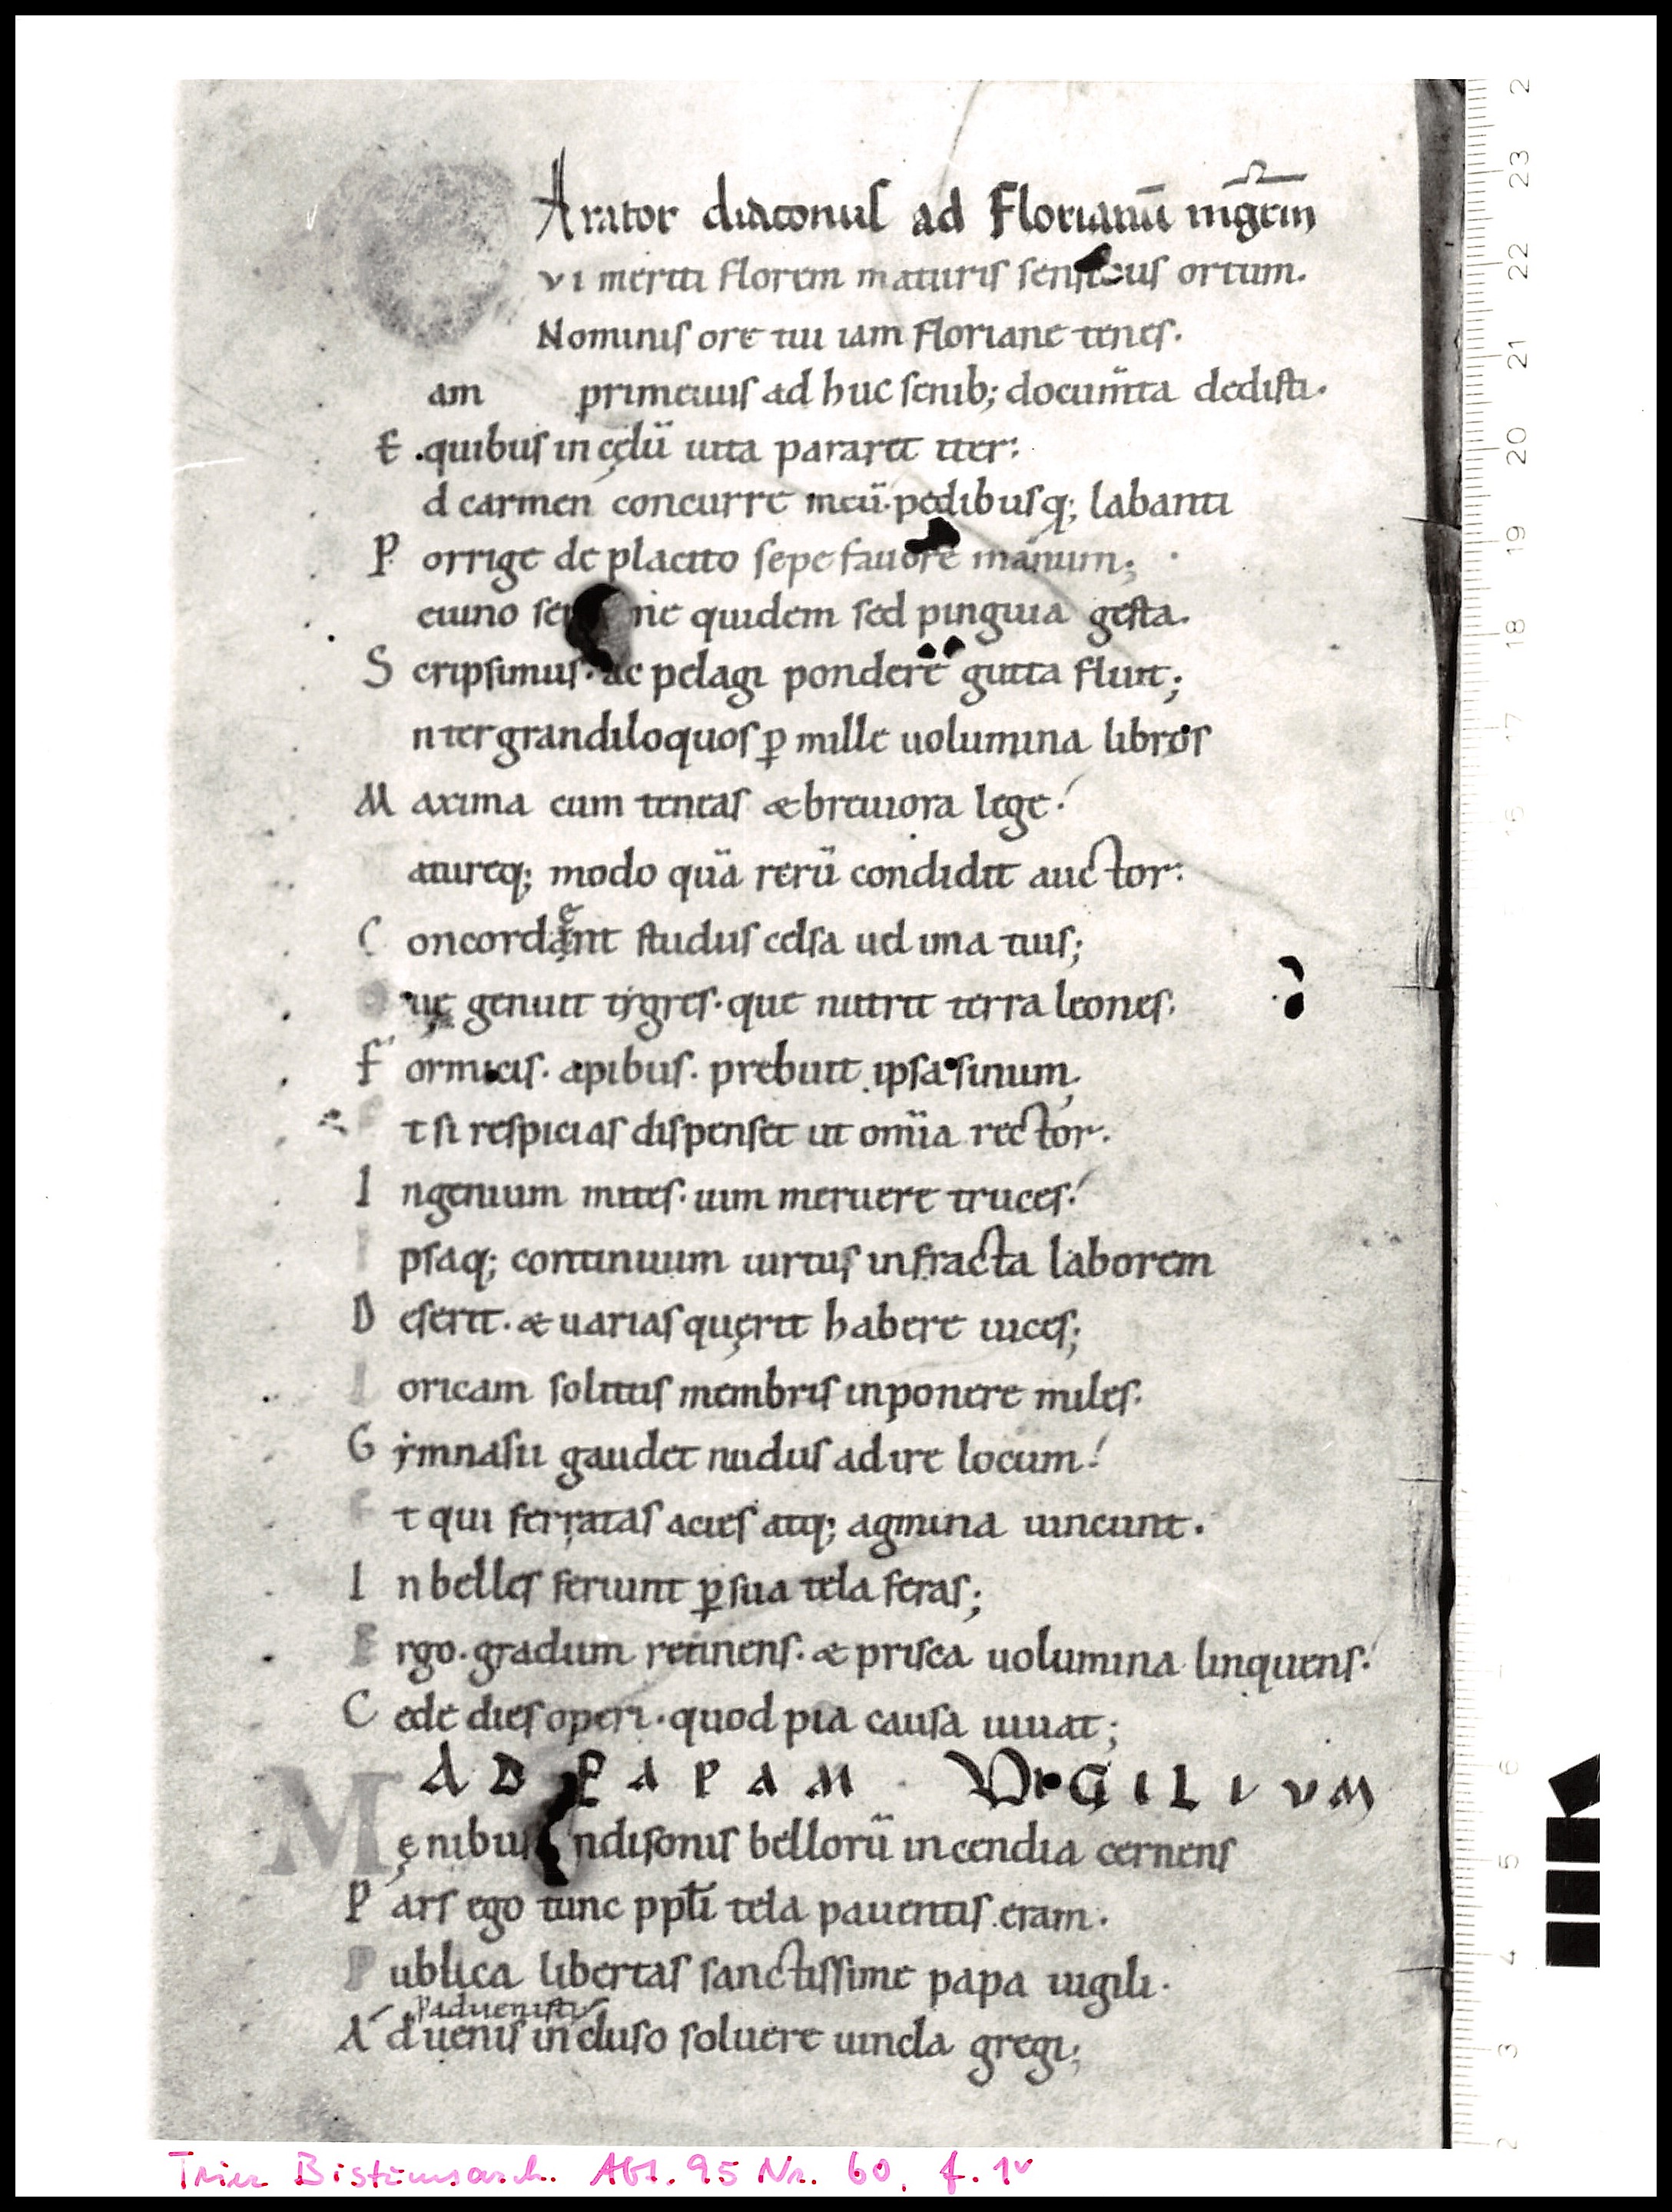 Arator diaconuſ ad Florianū mg̅rm
vi meriti florem maturiſ senſibus ortum.
Nominiſ ore tui iam floriane teneſ.
am primeuuſ ad huc ſenib; documīta dediſti.
E quibuſ in cęlū uita pararet iter:
d carmen concurre meū. pedibuſq; labanti
P orrige de placito ſepe fauore manum;
euino quidem ſed pinguia geſta.
S cripſimuſ. ac pelagi pondere gutta fluit;
nter grandiloquoſ ꝑ mille uolumina libroſ
M axima cum teneaſ & breuiora lege!
atureq; modo quā rerū condidit auctor:
C oncordant ſtudiiſ celſa uel ima tuiſ;
e
uę genuit tygreſ. que nutrit terra leoneſ.
F ormiciſ. apibuſ. prebuit ipſa ſinum;
E t ſi reſpiciaſ diſpenſet ut omīa rector.
I ngenium miteſ. uim meruere truceſ!
I pſaq; continuum uirtuſ infracta laborem
D eſerit. & uariaſ quęrit habere uiceſ;
l oricam ſolituſ membriſ inponere mileſ.
G ẏmnaſii gaudet nuduſ adire locum!
E t qui ferrataſ acieſ atq; agmina uincunt.
I nbelleſ feriunt ꝑ ſua tela feraſ;
E rgo. gradum retinenſ. & priſca uolumina linquenſ!
C ede dieſ operi. quod pia cauſa iuuat;
AD PAPAM VIGILIVM
M ęnibuſ undiſoniſ bellorū incendia cernenſ
P arſ ego tunc ppl̅i tela pauentiſ eram.
P ublica libertaſ ſanctiſſime papa uigili.
ꝑ adueniſti
A dueniſ incluſo ſoluere uincla gregi;
Trier Bistumsarch. Abt. 95 Nr. 60, f. 1v
2
23
22
21
20
19
18
17
16
6
5
4
3
2